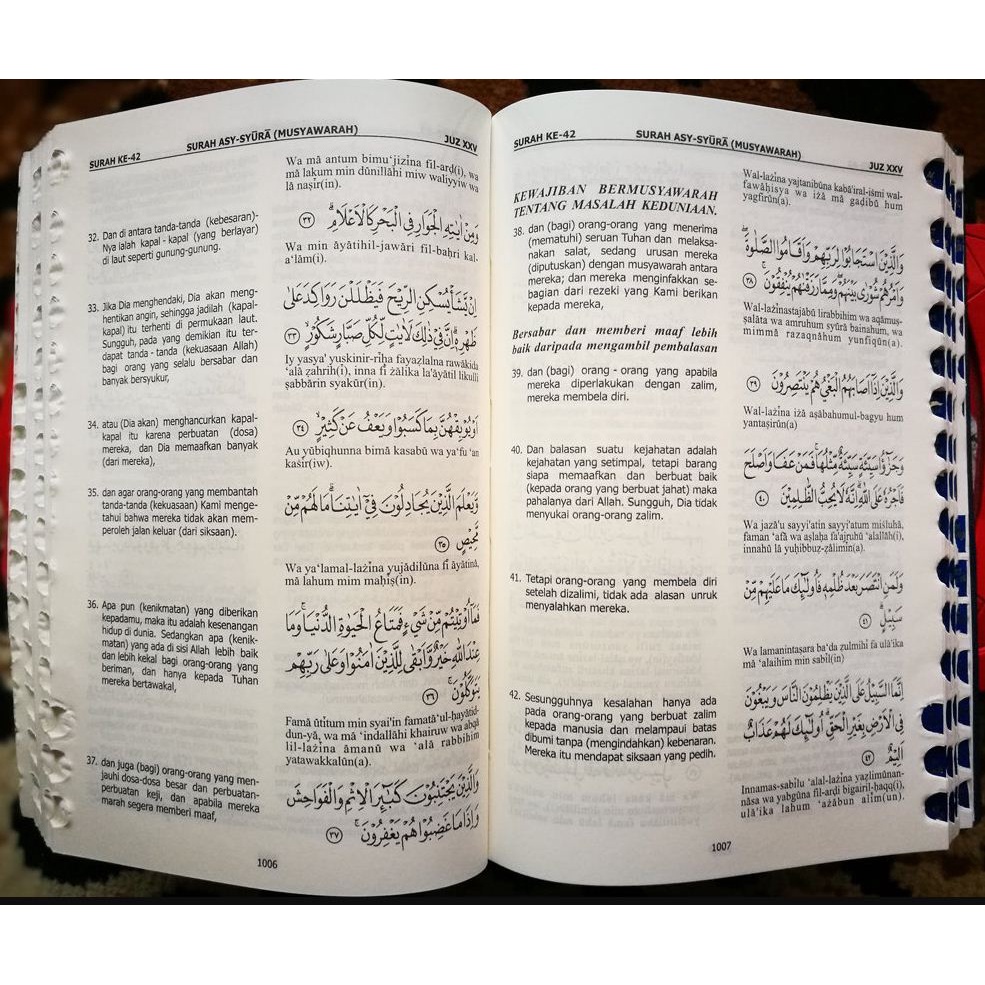 SURAH KE-42 SURAH ASY-SYŪRĀ (MUSYAWARAH) JUZ XXV
Wa mā antum bimu‘jizīna fil-arḍ(i), wa
mā lakum min dūnillāhi miw waliyyiw wa
lā naṣīr(in).
32. Dan di antara tanda-tanda (kebesaran)-
Nya ialah kapal - kapal (yang berlayar)
di laut seperti gunung-gunung.
وَمِنْ اٰيٰتِهِ الْجَوَارِ فِى الْبَحْرِ كَالْاَعْلَامِ ۗ ﴿٣٢﴾
Wa min āyātihil-jawāri fil-baḥri kal-
a‘lām(i).
33. Jika Dia menghendaki, Dia akan meng-
hentikan angin, sehingga jadilah (kapal-
kapal) itu terhenti di permukaan laut.
Sungguh, pada yang demikian itu ter-
dapat tanda - tanda (kekuasaan Allah)
bagi orang yang selalu bersabar dan
banyak bersyukur,
اِنْ يَّشَأْ يُسْكِنِ الرِّيْحَ فَيَظْلَلْنَ رَوَاكِدَ عَلٰى
ظَهْرِهٖ ۗاِنَّ فِيْ ذٰلِكَ لَاٰيٰتٍ لِّكُلِّ صَبَّارٍ شَكُوْرٍ ۙ ﴿٣٣﴾
Iy yasya' yuskinir-rīḥa fayaẓlalna rawākida
‘alā ẓahrih(ī), inna fī żālika la'āyātil likulli
ṣabbārin syakūr(in).
34. atau (Dia akan) menghancurkan kapal-
kapal itu karena perbuatan (dosa)
mereka, dan Dia memaafkan banyak
(dari mereka),
اَوْ يُوْبِقْهُنَّ بِمَا كَسَبُوْا وَيَعْفُ عَنْ كَثِيْرٍ ۙ ﴿٣٤﴾
Au yūbiqhunna bimā kasabū wa ya‘fu ‘an
kaṡīr(iw).
35. dan agar orang-orang yang membantah
tanda-tanda (kekuasaan) Kami menge-
tahui bahwa mereka tidak akan mem-
peroleh jalan keluar (dari siksaan).
وَّيَعْلَمَ الَّذِيْنَ يُجَادِلُوْنَ فِيْٓ اٰيٰتِنَاۗ مَا لَهُمْ مِّنْ
مَّحِيْصٍ ﴿٣٥﴾
Wa ya‘lamal-lażīna yujādilūna fī āyātinā,
mā lahum mim maḥīṣ(in).
36. Apa pun (kenikmatan) yang diberikan
kepadamu, maka itu adalah kesenangan
hidup di dunia. Sedangkan apa (kenik-
matan) yang ada di sisi Allah lebih baik
dan lebih kekal bagi orang-orang yang
beriman, dan hanya kepada Tuhan
mereka bertawakal,
فَمَآ اُوْتِيْتُمْ مِّنْ شَيْءٍ فَمَتَاعُ الْحَيٰوةِ الدُّنْيَا ۚوَمَا
عِنْدَ اللّٰهِ خَيْرٌ وَّاَبْقٰى لِلَّذِيْنَ اٰمَنُوْا وَعَلٰى رَبِّهِمْ
يَتَوَكَّلُوْنَ ۚ ﴿٣٦﴾
Famā ūtītum min syai'in famatā‘ul-ḥayātid-
dun-yā, wa mā ‘indallāhi khairuw wa abqā
lil-lażīna āmanū wa ‘alā rabbihim
yatawakkalūn(a).
37. dan juga (bagi) orang-orang yang men-
jauhi dosa-dosa besar dan perbuatan-
perbuatan keji, dan apabila mereka
marah segera memberi maaf,
وَالَّذِيْنَ يَجْتَنِبُوْنَ كَبٰۤىِٕرَ الْاِثْمِ وَالْفَوَاحِشَ
وَاِذَا مَا غَضِبُوْا هُمْ يَغْفِرُوْنَ ۚ ﴿٣٧﴾
1006
SURAH KE-42 SURAH ASY-SYŪRĀ (MUSYAWARAH) JUZ XXV
Wal-lażīna yajtanibūna kabā'iral-iṡmi wal-
fawāḥisya wa iżā mā gaḍibū hum
yagfirūn(a).
KEWAJIBAN BERMUSYAWARAH
TENTANG MASALAH KEDUNIAAN.
38. dan (bagi) orang-orang yang menerima
(mematuhi) seruan Tuhan dan melaksa-
nakan salat, sedang urusan mereka
(diputuskan) dengan musyawarah antara
mereka; dan mereka menginfakkan se-
bagian dari rezeki yang Kami berikan
kepada mereka,
وَالَّذِيْنَ اسْتَجَابُوْا لِرَبِّهِمْ وَاَقَامُوا الصَّلٰوةَ ۖ
وَاَمْرُهُمْ شُوْرٰى بَيْنَهُمْ ۖوَمِمَّا رَزَقْنٰهُمْ يُنْفِقُوْنَ ۚ ﴿٣٨﴾
Wal-lażīnastajābū lirabbihim wa aqāmuṣ-
ṣalāta wa amruhum syūrā bainahum, wa
mimmā razaqnāhum yunfiqūn(a).
Bersabar dan memberi maaf lebih
baik daripada mengambil pembalasan
39. dan (bagi) orang - orang yang apabila
mereka diperlakukan dengan zalim,
mereka membela diri.
وَالَّذِيْنَ اِذَآ اَصَابَهُمُ الْبَغْيُ هُمْ يَنْتَصِرُوْنَ ﴿٣٩﴾
Wal-lażīna iżā aṣābahumul-bagyu hum
yantaṣirūn(a)
40. Dan balasan suatu kejahatan adalah
kejahatan yang setimpal, tetapi barang
siapa memaafkan dan berbuat baik
(kepada orang yang berbuat jahat) maka
pahalanya dari Allah. Sungguh, Dia tidak
menyukai orang-orang zalim.
وَجَزٰۤؤُا سَيِّئَةٍ سَيِّئَةٌ مِّثْلُهَا ۚفَمَنْ عَفَا وَاَصْلَحَ
فَاَجْرُهٗ عَلَى اللّٰهِ ۗاِنَّهٗ لَا يُحِبُّ الظّٰلِمِيْنَ ﴿٤٠﴾
Wa jazā'u sayyi'atin sayyi'atum miṡluhā,
faman ‘afā wa aṣlaḥa fa'ajruhū ‘alallāh(i),
innahū lā yuḥibbuẓ-ẓālimīn(a).
41. Tetapi orang-orang yang membela diri
setelah dizalimi, tidak ada alasan unruk
menyalahkan mereka.
وَلَمَنِ انْتَصَرَ بَعْدَ ظُلْمِهٖ فَاُولٰۤىِٕكَ مَا عَلَيْهِمْ مِّنْ
سَبِيْلٍ ۗ ﴿٤١﴾
Wa lamanintaṣara ba‘da ẓulmihī fa ulā'ika
mā ‘alaihim min sabīl(in)
42. Sesungguhnya kesalahan hanya ada
pada orang-orang yang berbuat zalim
kepada manusia dan melampaui batas
dibumi tanpa (mengindahkan) kebenaran.
Mereka itu mendapat siksaan yang pedih.
اِنَّمَا السَّبِيْلُ عَلَى الَّذِيْنَ يَظْلِمُوْنَ النَّاسَ وَيَبْغُوْنَ
فِى الْاَرْضِ بِغَيْرِ الْحَقِّ ۗاُولٰۤىِٕكَ لَهُمْ عَذَابٌ
اَلِيْمٌ ﴿٤٢﴾
Innamas-sabīlu ‘alal-lażīna yaẓlimūnan-
nāsa wa yabgūna fil-arḍi bigairil-ḥaqq(i),
ulā'ika lahum ‘ażābun alīm(un).
1007